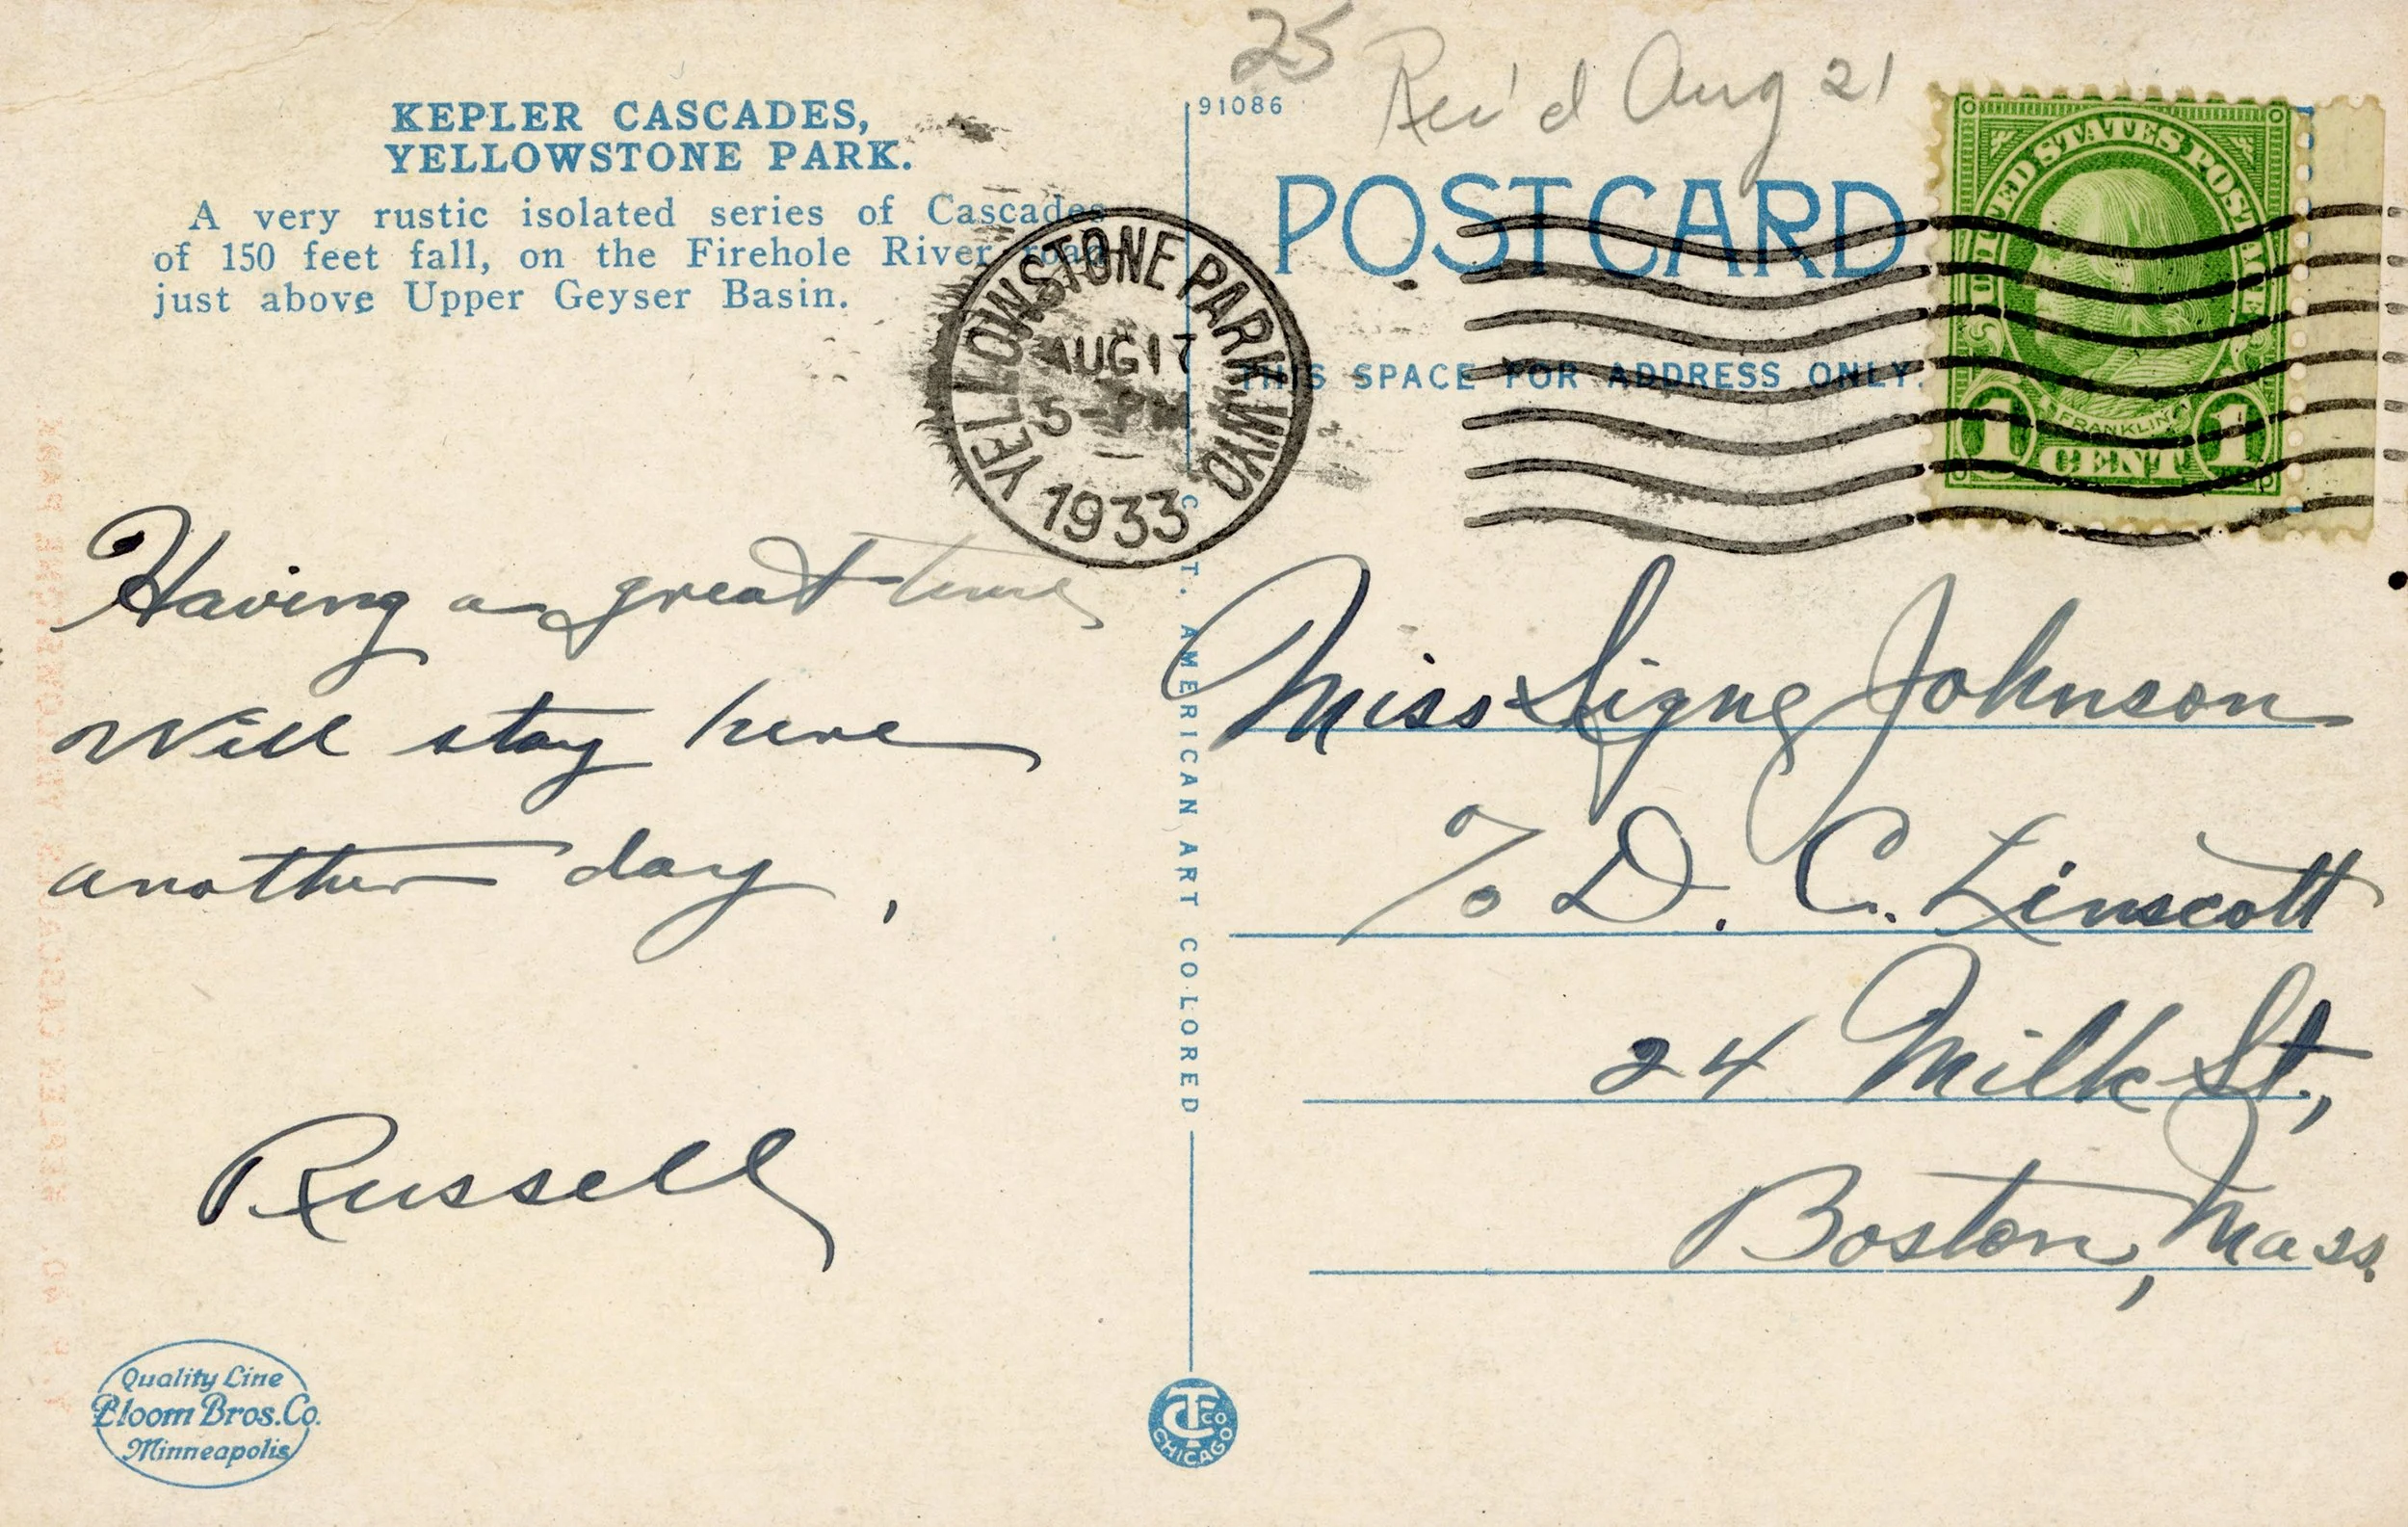 KEPLER CASCADES,
YELLOWSTONE PARK.
A very rustic isolated series of Cascades
of 150 feet fall, on the Firehole River road
just above Upper Geyser Basin.
Having a great time
Will stay here
another day,
Russell
Quality Line
Bloom Bros. Co.
Minneapolis
YELLOWSTONE PARK. WYO
AUG 17
5-PM
1933
C. T. AMERICAN ART COLORED
CT CO
CHICAGO
25
Rec'd Aug 21
91086
POST CARD
THIS SPACE FOR ADDRESS ONLY.
UNITED STATES POSTAGE
FRANKLIN
1 CENT 1
Miss Signe Johnson
c/o D. C. Linscott
24 Milk St.,
Boston, Mass.